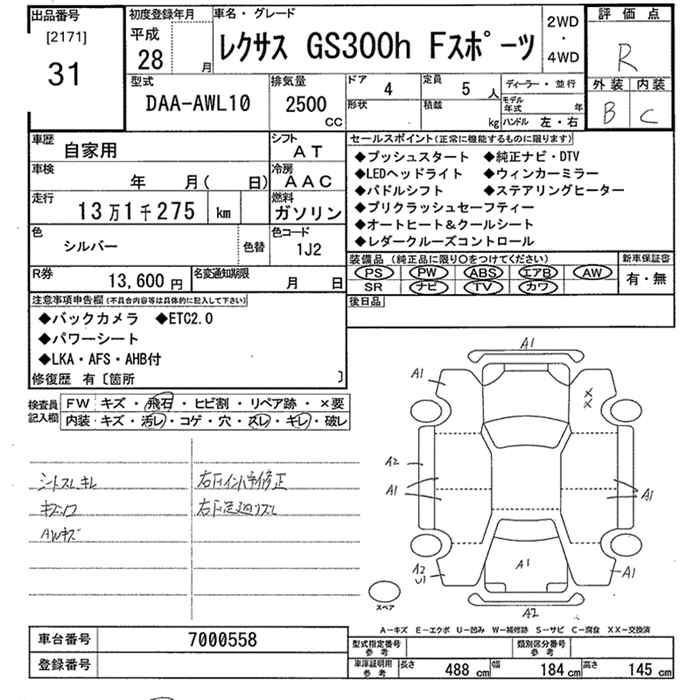 出品番号
[2171]
31
初度登録年月
平成
28 月
車名・グレード
レクサス GS300h Fスポーツ
2WD
・
4WD
評価点
R
外装 内装
B C
型式
DAA-AWL10
排気量
2500
CC
ドア
4
定員
5 人
形状
積載
kg
ディーラー・並行
モデル年式 年
ハンドル 左・右
車歴
自家用
シフト
AT
車検
年 月( 日)
冷房
AAC
走行
13万1千275 km
燃料
ガソリン
色
シルバー
色替
色コード
1J2
R券
13,600 円
名変通知期限
月 日
セールスポイント(正常に機能するものに限ります)
◆プッシュスタート ◆純正ナビ・DTV
◆LEDヘッドライト ◆ウィンカーミラー
◆パドルシフト ◆ステアリングヒーター
◆プリクラッシュセーフティー
◆オートヒート&クールシート
◆レダークルーズコントロール
装備品(純正品に限り○をつけてください)
PS PW ABS エアB AW
SR ナビ TV カワ
新車保証書
有・無
後日品
注意事項申告欄(不具合内容等は具体的に記入して下さい)
◆バックカメラ ◆ETC2.0
◆パワーシート
◆LKA・AFS・AHB付
修復歴 有〔箇所 〕
検査員記入欄
FW キズ・飛石・ヒビ割・リペア跡・×要
内装 キズ・汚レ・コゲ・穴・スレ・キレ・破レ
シートスレキレ
AWキズ
A1
A1
XX
A2
A1
A1
A2
U1
A1
A1
A2
スペア
A-キズ E-エクボ U-凹み W-補修跡 S-サビ C-腐食 XX-交換済
車台番号
7000558
登録番号
型式指定番号
参考
類別区分番号
参考
車庫証明用
参考
長さ 488 cm 幅 184 cm 高さ 145 cm